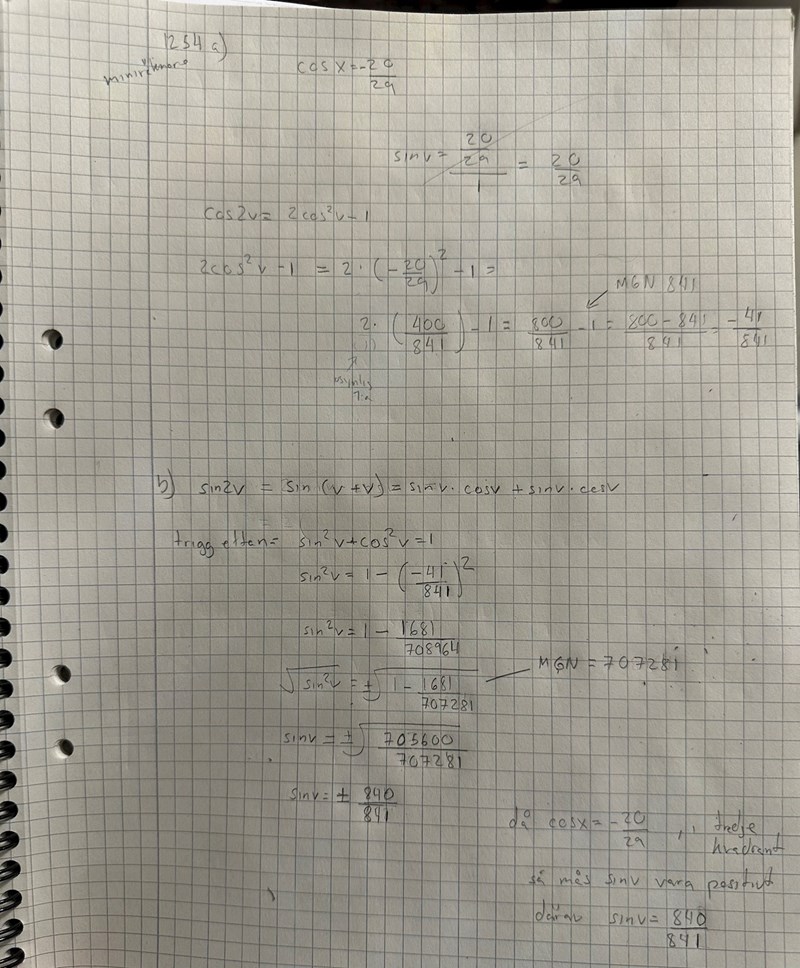 1254 a)
miniräknare
cos x = -20/29
sin v = (20/29)/1 = 20/29
cos2v = 2cos²v - 1
2cos²v - 1 = 2 · (-20/29)² - 1 =
MGN 841
2 · (400/841) - 1 = 800/841 - 1 = (800 - 841)/841 = -41/841
osynlig
1:a
b) sin2v = sin (v + v) = sinv · cosv + sinv · cosv
trigg ettan = sin²v + cos²v = 1
sin²v = 1 - (-41/841)²
sin²v = 1 - 1681/708964
√sin²v = ±√(1 - 1681/707281)
MGN = 707281
sinv = ±√(705600/707281)
sinv = ± 840/841
då cosx = -20/29, i tredje
kvadrant
så mås sinv vara positivt
därav sinv = 840/841